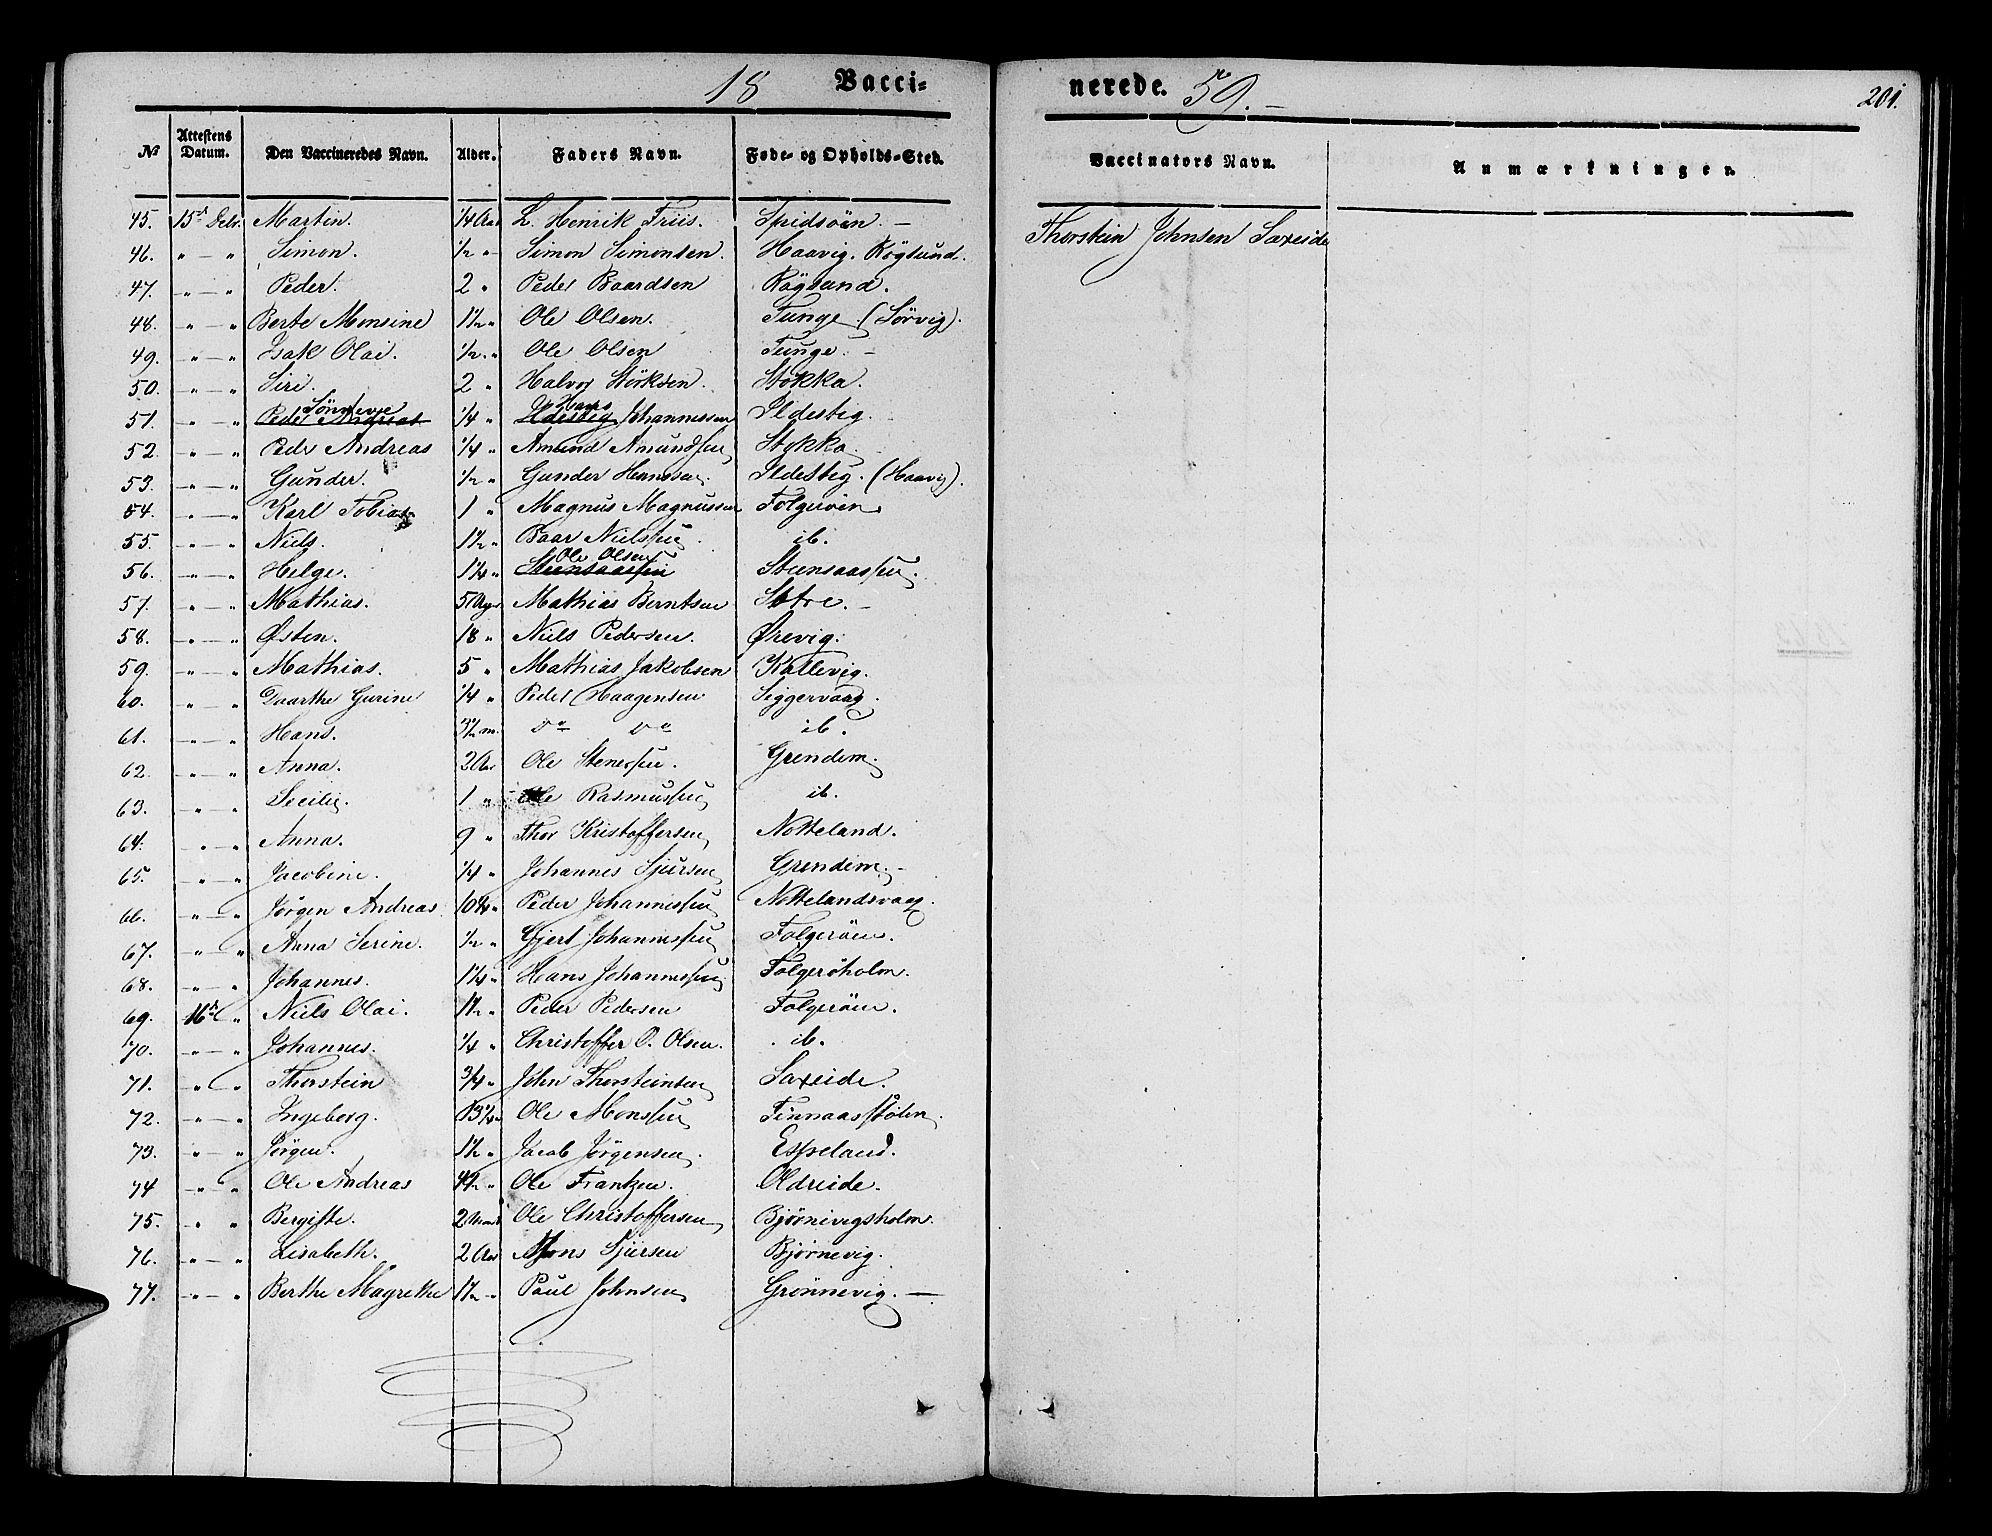 18 Vacci-
nerede. 59. –
201.
No Attestens Datum. Den Vaccineredes Navn. Alder. Faders Navn. Føde- og Opholds-Sted. Vaccinators Navn. Anmærkninger.
45. 15d Martin. 1/4 Aar L. Henrik Friis. Spidsöen. – Thorstein Johnsen Saxeide
46. " – " Simon. 1/2 " Simon Simonsen. Haavig. Rögsund.
47. " – " Peder. 2 " Peder Baardsen Rögsund.
48. " – " Berte Monsine 1 1/2 " Ole Olsen. Tunge. (Sörvig).
49. " – " Isak Olai. 1/2 " Ole Olsen Tunge. –
50. " – " Siri. 2 " Halvor Störksen. Stokka.
51. " – " Peder Andreas Sönneve 1/4 " Ildesteg Hans Johannessen Ildesteg.
52. " – " Peder Andreas 1/4 " Amund Amundsen Stykka
53. " – " Gunder. 1/2 " Gunder Hanssen. Ildesteg. (Haavig).
54. " – " Karl Tobias 1 " Magnus Magnussen Folgeröen
55. " – " Niels. 1 1/2 " Baar Nielssen. ib.
56. " – " Helge. 1 1/4 " Steensaassen Ole Olsen Steensaassen.
57. " – " Mathias. 5 Mathias Berntsen Stotre. –
58. " – " Østen. 18 " Niels Pedersen. Ørevig.
59. " – " Mathias. 5 " Mathias Jakobsen Kallevig.
60. " – " Daarthe Gurine 1/4 " Peder Haagensen Siggervaag.
61. " – " Hans. 3 1/2 m. do do ib.
62. " – " Anna. 2 Aar Ole Stenessen. Grendem.
63. " – " Secilie. 1 " Ole Rasmussen ib.
64. " – " Anna. 9 " Thor Kristoffersen Notteland.
65. " – " Jacobine. 1/4 " Johannes Sjursen Grendem. –
66. " – " Jørgen Andreas 10 " Peder Johannessen Nottelandsvaag.
67. " – " Anna Serine. 1/2 " Gjert Johannessen Folgeröen.
68. " – " Johannes. 1 1/4 " Hans Johannessen Folgeröholm.
69. 16d " Niels Olai. 1 1/2 " Peder Pedersen Folgeröen.
70. " – " Johannes. 1/4 " Christoffer O. Olsen. ib.
71. " – " Thorstein 3/4 " John Thorsteinsen Saxeide.
72. " – " Ingeborg. Ole Monssen Finnaasstölen.
73. " – " Jørgen. 1 1/2 " Jacob Jørgensen. Espeland.
74 " – " Ole Andreas 4 1/2 " Ole Frantzen. Oldreide.
75. " " Bergitte. 2 Ole Christoffersen Bjørnivigsholm.
76. " – " Lisabeth. 2 Aar Mons Sjursen Bjørnevig.
77. " – " Berthe Magrethe 1 1/2 " Paul Johnsen Grønnevig. –